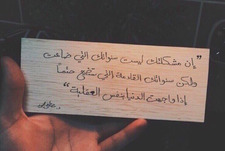 "إن مشكلتك ليست سنواتك التي ضاعت
ولكن سنواتك القادمة التي ستضيع حتماً
إذا واجهت الدنيا بنفس العقلية"